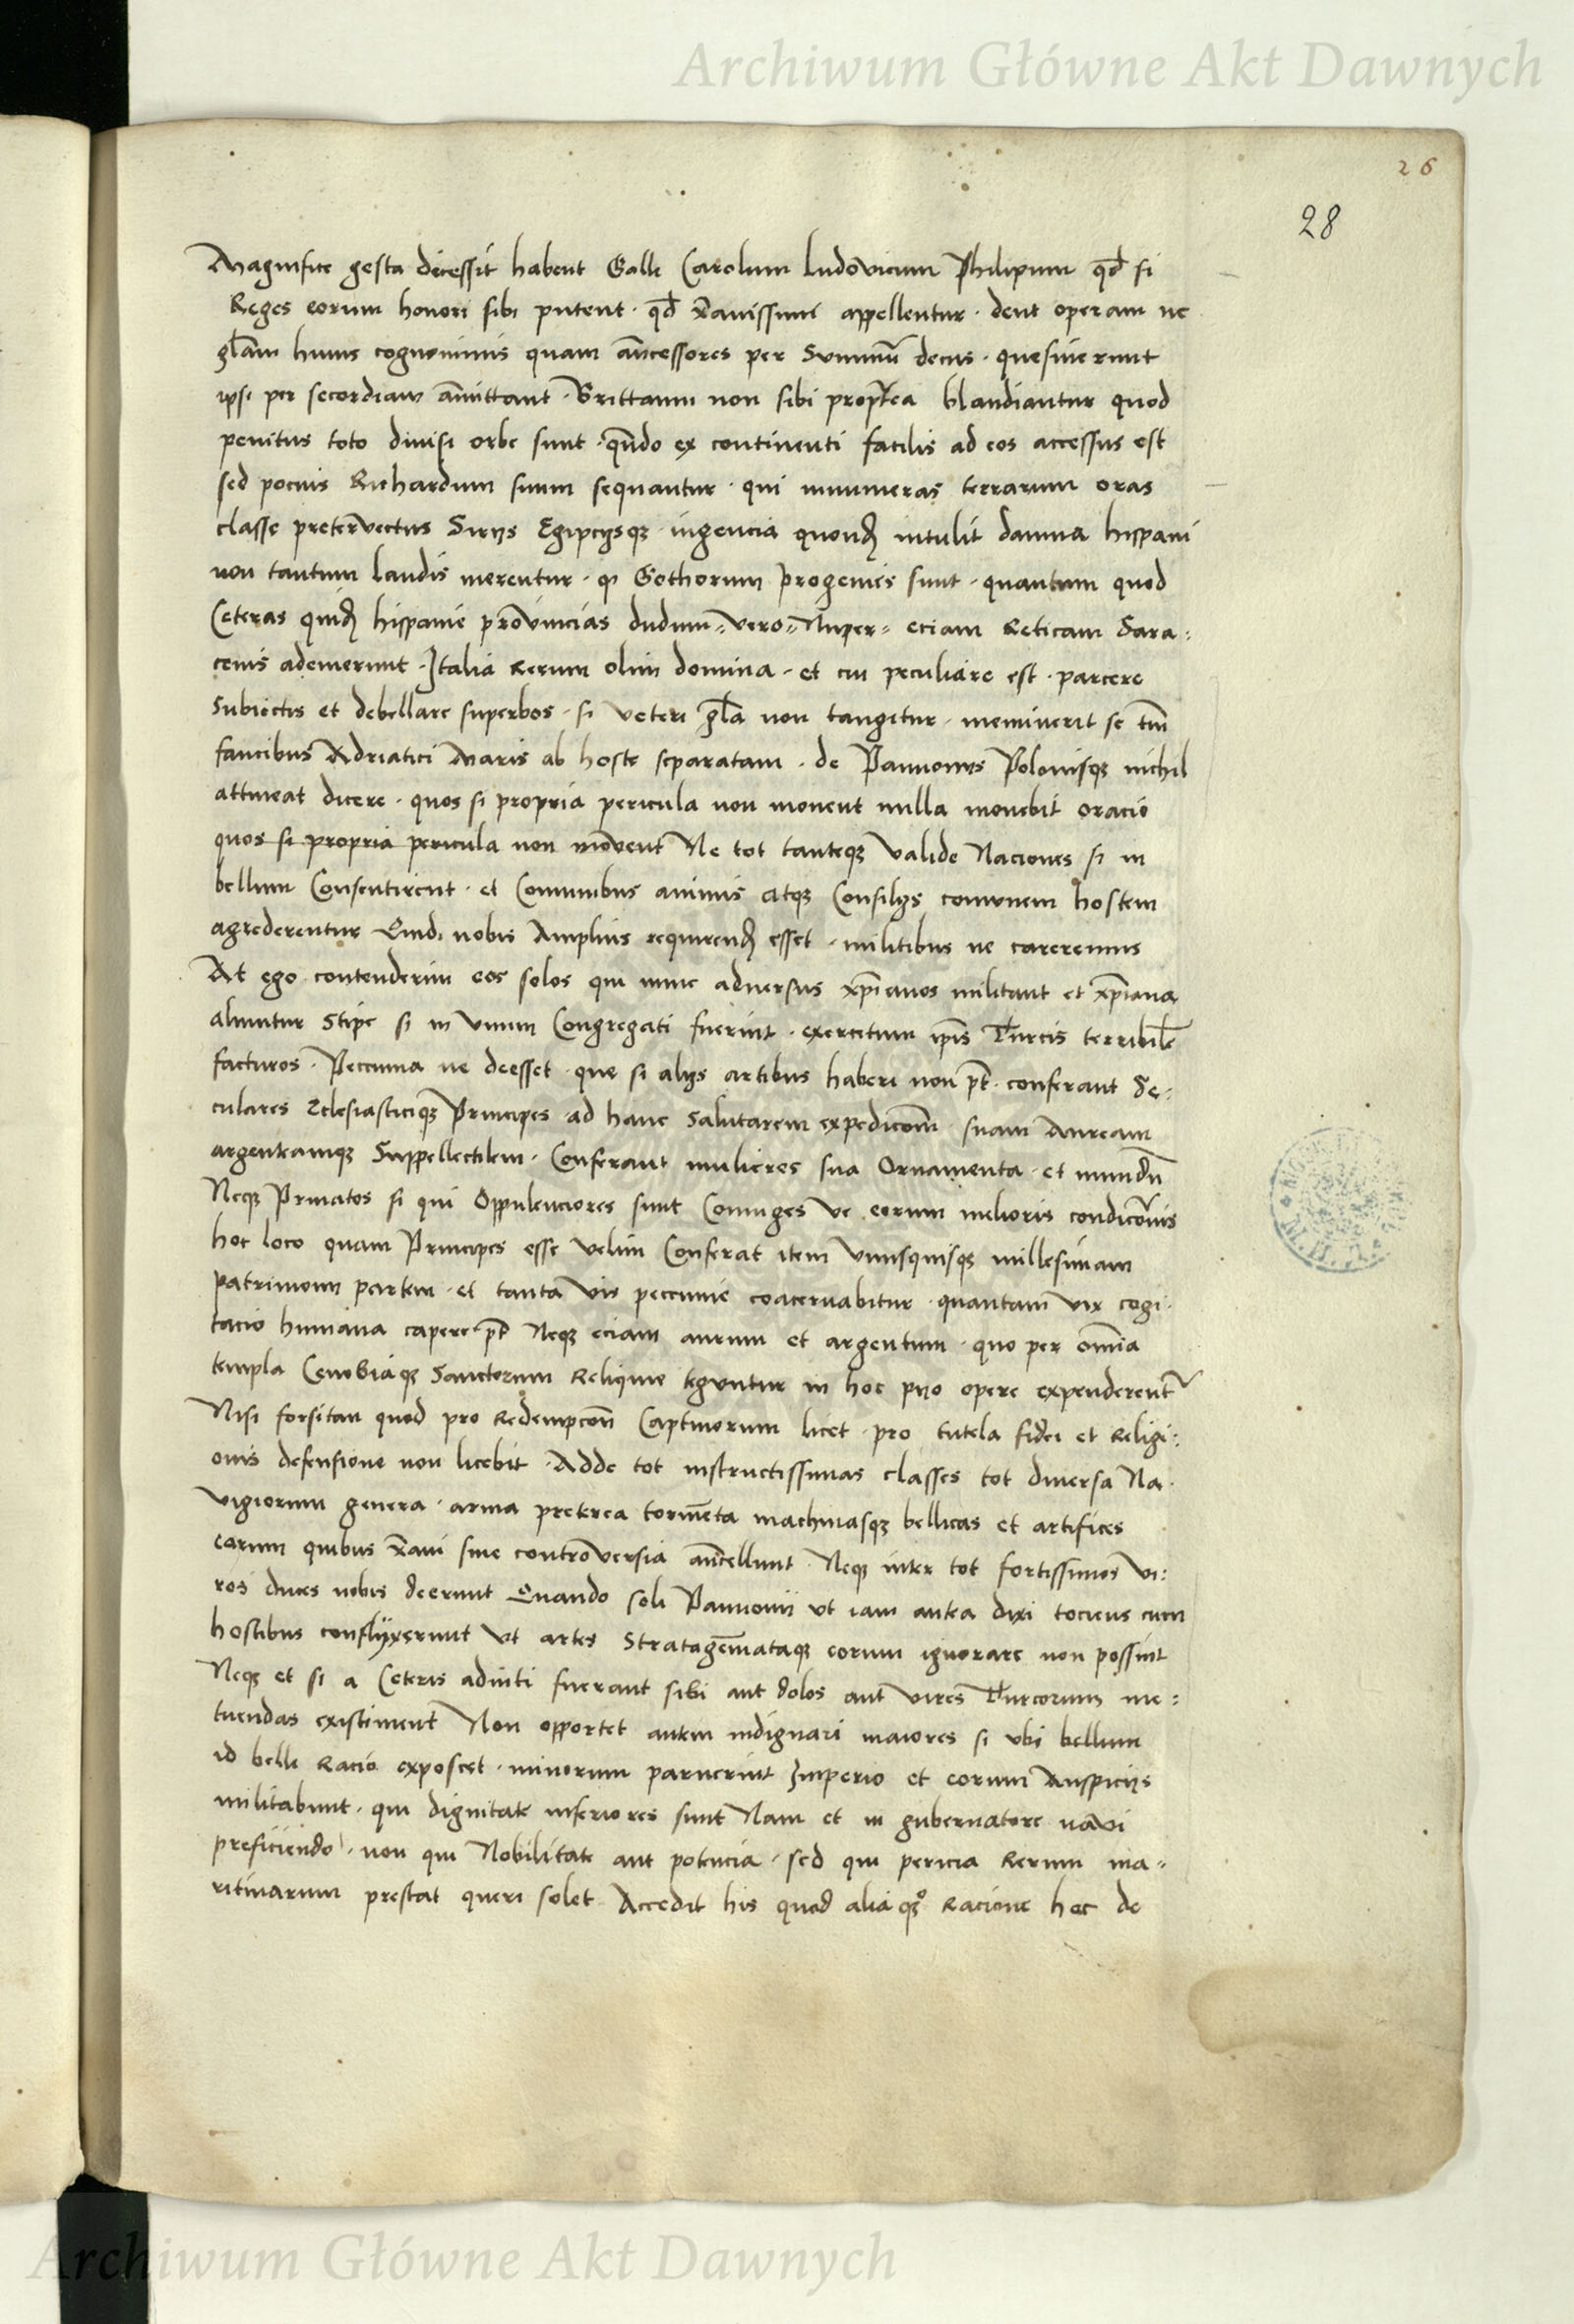 Archiwum Główne Akt Dawnych
26
28
Magnifice gesta decessit habent Galli Carolum ludovicum Philipum qd si
Reges eorum honori sibi putent · qd xanissimi appellentur · dent operam ne
glam huius cognominis quam ancessores per Summu decus · quesiuerunt
ipsi per secordiam amittant · Brittanni non sibi proptea blandiantur quod
penitus toto diuisi orbe sunt · qndo ex continenti facilis ad eos accessus est
sed pocius Richardum suum sequantur · qui innumeras terrarum oras
classe pretervectus Sirijs Egipcijsqz · ingencia quond intulit damna hispani
non tantum laudis merentur · q Gothorum progenies sunt · quantum quod
Ceteras quid hispanie provincias dudum vero Nuper eciam Reticam Sara:
cenis ademerunt · Italia Rerum olim domina · et cui peculiare est · parcere
Subiectis et debellare superbos · si veteri gla non tangitur · meminerit se tm
faucibus Adriatici Maris ab hoste separatam · de Pannonijs Polonisqz nichil
attineat dicere · quos si propria pericula non monent nulla monebit oracio
quos si propria pericula non movent Ne tot tanteqz valide Naciones si in
bellum Consentirent · et Comunibus animis atqz Consilijs comunem hostem
agrederentur Quid nobis Amplius requirend esset · militibus ne careremus
At ego contenderim eos solos qui nunc aduersus xpianos militant et xpiana
aluntur Stipe si in vnum Congregati fuerint · exercitum ipis Turcis terribile
facturos · Peccunia ne deesset · que si alijs artibus haberi non pt · conferant Se:
culares Eclesiasticiqz Principes · ad hanc Salutarem expedicom · suam Auream
argenteamqz Suppellectilem · Conferant mulieres sua Ornamenta · et mundu
Neqz Priuatos si qui Oppulenciores sunt Coniuges ve eorum melioris condiconis
hoc loco quam Principes esse velim Conferat item vnusquisqz millesimam
patrimonii partem · et tanta vis peccunie coaceruabitur · quantam vix cogi·
tacio humana capere pt Neqz eciam aurum et argentum · quo per omia
templa Cenobiaqz Sanctorum Reliquie teguntur in hoc pijo opere expenderent
Nisi forsitan quod pro Redempcon Captiuorum licet · pro tutela fidei et Religi:
onis defensione non licebit · Adde tot instructissimas classes tot diuersa Na·
vigiorum genera · arma preterea tormeta machinasqz bellicas et artifices
earum quibus xani sine controversia ancellunt · Neqz inter tot fortissimos vi:
ros duces nobis deerunt Quando soli Pannonij vt iam antea dixi tociens cum
hostibus conflijxerunt vt artes Stratagemataqz eorum ignorare non possint
Neqz et si a Ceteris adiuti fuerant sibi aut dolos aut vires Turcorum me:
tuendas existiment Non opportet autem indignari maiores si vbi bellum
id belli Racio exposcet · minorum paruerint Imperio et eorum Auspicijs
militabunt · qui dignitate inferiores sunt Nam et in gubernatore navi
preficiendo · non qui Nobilitate aut potencia · sed qui pericia Rerum ma-
ritimarum prestat queri solet Accedit his quod alia qz Racione hec de
Archiwum Główne Akt Dawnych